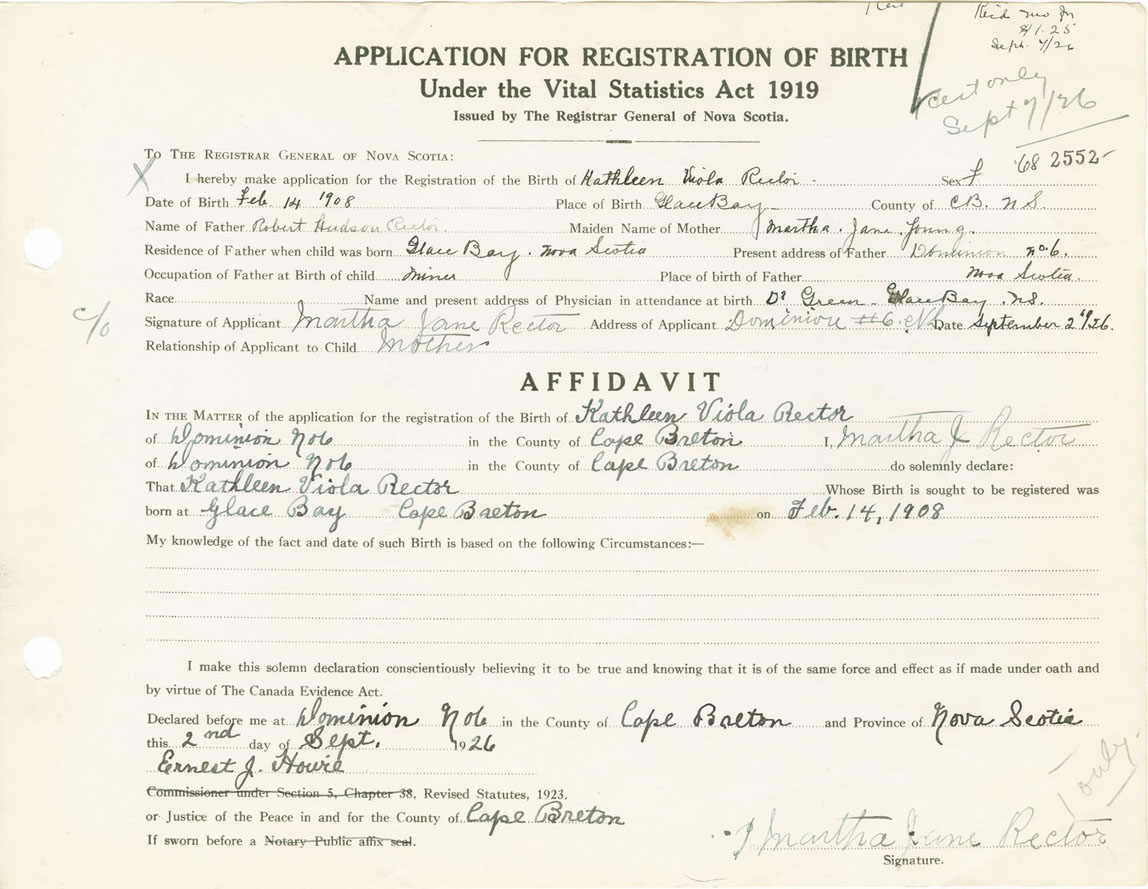 Rec'd mo Jn
$1.25
Sept. 7/26
cert only
Sept 7/26
APPLICATION FOR REGISTRATION OF BIRTH
Under the Vital Statistics Act 1919
Issued by The Registrar General of Nova Scotia.
'68 2552
X
TO THE REGISTRAR GENERAL OF NOVA SCOTIA:
I hereby make application for the Registration of the Birth of Kathleen Viola Rector. Sex f
Date of Birth Feb. 14 1908 Place of Birth Glace Bay County of C.B. N.S.
Name of Father Robert Hudson Rector. Maiden Name of Mother Martha. Jane. Young.
Residence of Father when child was born Glace Bay. Nova Scotia Present address of Father Dominion no. 6.
Occupation of Father at Birth of child miner Place of birth of Father Nova Scotia.
Race Name and present address of Physician in attendance at birth Dr Green Glace Bay. N.S.
c/o
Signature of Applicant Martha Jane Rector Address of Applicant Dominion #6. Date September 2nd/26.
Relationship of Applicant to Child Mother
AFFIDAVIT
IN THE MATTER of the application for the registration of the Birth of Kathleen Viola Rector
of Dominion No 6 in the County of Cape Breton I, Martha J Rector
of Dominion No 6 in the County of Cape Breton do solemnly declare:
That Kathleen Viola Rector Whose Birth is sought to be registered was
born at Glace Bay Cape Breton on Feb. 14, 1908
My knowledge of the fact and date of such Birth is based on the following Circumstances:—
I make this solemn declaration conscientiously believing it to be true and knowing that it is of the same force and effect as if made under oath and
by virtue of The Canada Evidence Act.
Declared before me at Dominion No 6 in the County of Cape Breton and Province of Nova Scotia
this 2nd day of Sept. 1926
Ernest J. Howie
Commissioner under Section 5, Chapter 38, Revised Statutes, 1923,
or Justice of the Peace in and for the County of Cape Breton
If sworn before a Notary Public affix seal.
only
Martha Jane Rector
Signature.